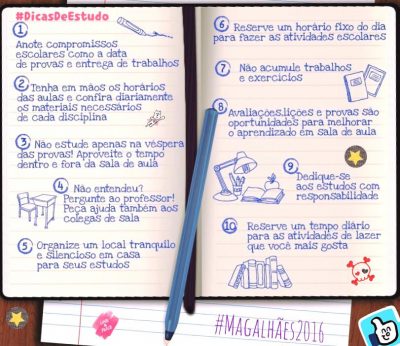 #DicasDeEstudo
1
Anote compromissos
escolares como a data
de provas e entrega de trabalhos
2 Tenha em mãos os horários
das aulas e confira diariamente
os materiais necessários
de cada disciplina
3 Não estude apenas na véspera
das provas! Aproveite o tempo
dentro e fora da sala de aula
4 Não entendeu?
Pergunte ao professor!
Peça ajuda também aos
colegas de sala
5 Organize um local tranquilo
e silencioso em casa
para seus estudos
6 Reserve um horário fixo do dia
para fazer as atividades escolares
7 Não acumule trabalhos
e exercícios
8 Avaliações,lições e provas são
oportunidades para melhorar
o aprendizado em sala de aula
9
Dedique-se
aos estudos com
responsabilidade
10 Reserve um tempo diário
para as atividades de lazer
que você mais gosta
#MAGALHÃES2016